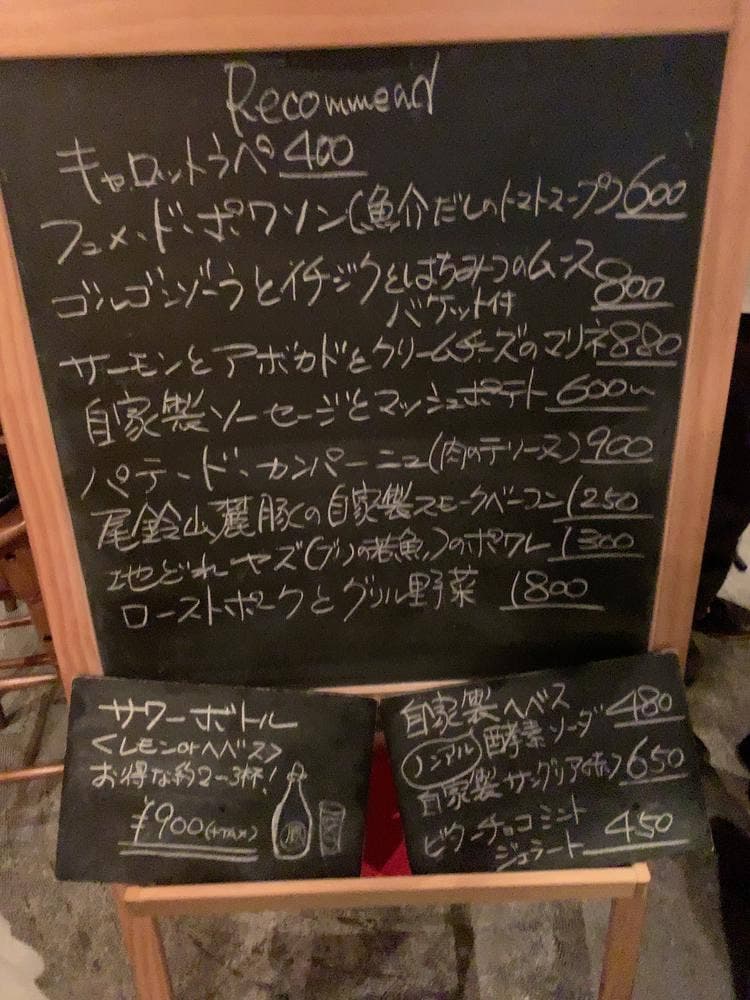 Recommend
キャロットラペ 400
フュメ・ド・ポワソン(魚介だしのトマトスープ) 600
ゴルゴンゾーラとイチジクとはちみつのムース 800
バケット付
サーモンとアボカドとクリームチーズのマリネ 880
自家製ソーセージとマッシュポテト 600〜
パテ・ド・カンパーニュ(肉のテリーヌ) 900
尾鈴山麓豚の自家製スモークベーコン 1250
地どれヤズ(ブリの若魚)のポワレ 1300
ローストポークとグリル野菜 1800
サワーボトル
<レモン or ヘベス>
お得な約2-3杯!
¥900(+TAX)
自家製ヘベス
ノンアル 酵素ソーダ 480
自家製サングリア(赤) 650
ビターチョコミント
ジェラート 450